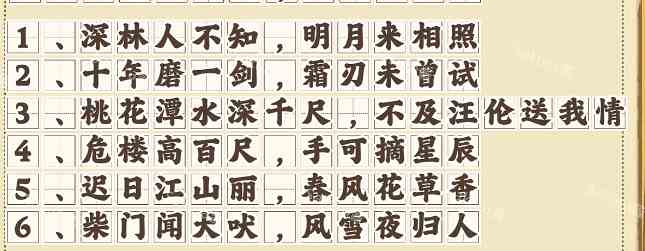 1、深林人不知,明月来相照
2、十年磨一剑,霜刃未曾试
3、桃花潭水深千尺,不及汪伦送我情
4、危楼高百尺,手可摘星辰
5、迟日江山丽,春风花草香
6、柴门闻犬吠,风雪夜归人